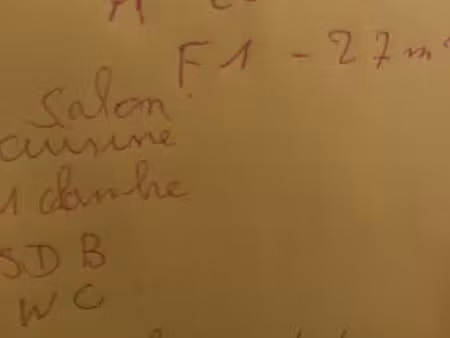 F1 - 27 m²
Salon
cuisine
1 chambre
SDB
WC